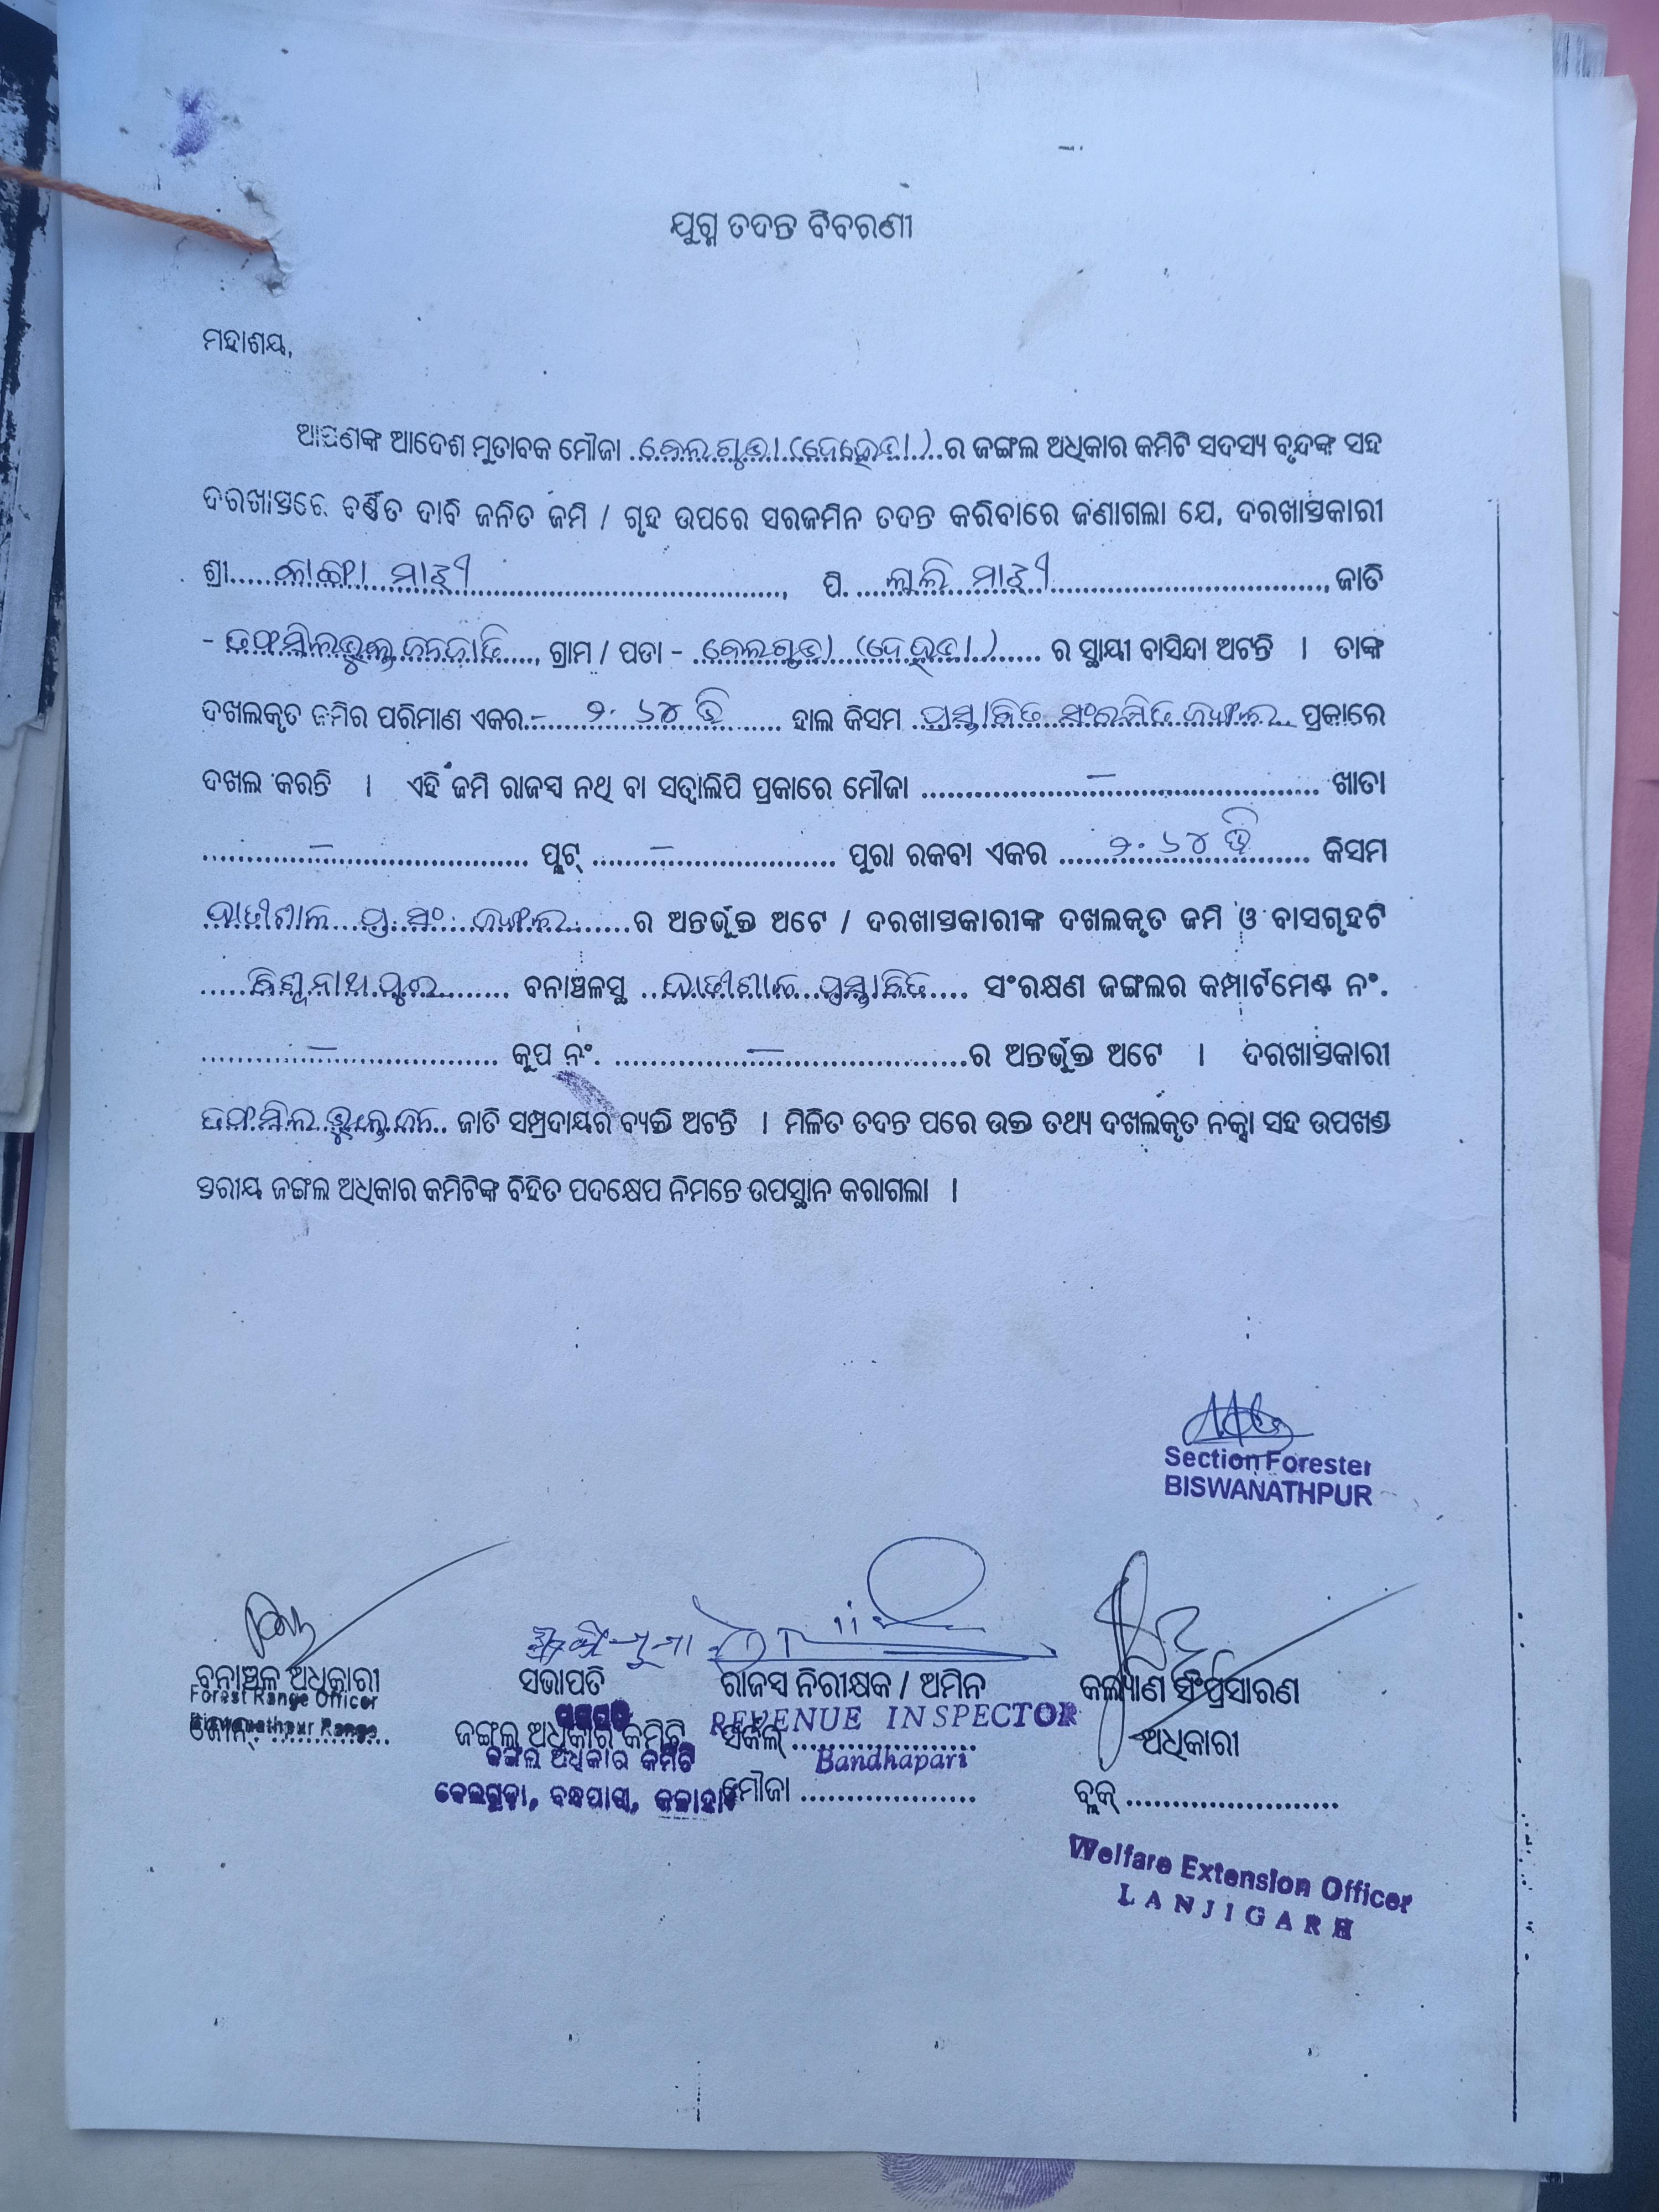 ଯୁଗ୍ମ ତଦନ୍ତ ବିବରଣୀ
ମହାଶୟ,
ଆପଣଙ୍କ ଆଦେଶ ମୁତାବକ ମୌଜା ..........ର ଜଙ୍ଗଲ ଅଧିକାର କମିଟି ସଦସ୍ୟ ବୃନ୍ଦଙ୍କ ସହ
ଦରଖାସ୍ତରେ ବର୍ଣ୍ଣିତ ଦାବି ଜନିତ ଜମି / ଗୃହ ଉପରେ ସରଜମିନ ତଦନ୍ତ କରିବାରେ ଜଣାଗଲା ଯେ, ଦରଖାସ୍ତକାରୀ
ଶ୍ରୀ..... ମାଝୀ ....................., ପି. ... ଲୁଲି ମାଝୀ ....................., ଜାତି
- ତଫସିଲଭୁକ୍ତ ଜନଜାତି ...., ଗ୍ରାମ / ପଡା - .......... ର ସ୍ଥାୟୀ ବାସିନ୍ଦା ଅଟନ୍ତି । ତାଙ୍କ
ଦଖଲକୃତ ଜମିର ପରିମାଣ ଏକର.... ୨.୬୪ ଡି ........ ହାଲ କିସମ .. ପ୍ରସ୍ତାବିତ ସଂରକ୍ଷିତ ଜଙ୍ଗଲ .. ପ୍ରକାରେ
ଦଖଲ କରନ୍ତି । ଏହି ଜମି ରାଜସ୍ୱ ନଥି ବା ସତ୍ୱାଲିପି ପ୍ରକାରେ ମୌଜା ..........–.......... ଖାତା
..........–.......... ପ୍ଲଟ୍ .....–.......... ପୁରା ରକବା ଏକର .... ୨.୬୪ ଡି .... କିସମ
ପ୍ର. ସଂ. ଜଙ୍ଗଲ ......ର ଅନ୍ତର୍ଭୁକ୍ତ ଅଟେ / ଦରଖାସ୍ତକାରୀଙ୍କ ଦଖଲକୃତ ଜମି ଓ ବାସଗୃହଟି
.... ବିଶ୍ୱନାଥପୁର ...... ବନାଞ୍ଚଳସ୍ଥ .. ପ୍ରସ୍ତାବିତ .... ସଂରକ୍ଷଣ ଜଙ୍ଗଲର କମ୍ପାର୍ଟମେଣ୍ଟ ନଂ.
..........–.......... କୁପ ନଂ. ..........–..........ର ଅନ୍ତର୍ଭୁକ୍ତ ଅଟେ । ଦରଖାସ୍ତକାରୀ
ତଫସିଲଭୁକ୍ତ ଜନ.. ଜାତି ସମ୍ପ୍ରଦାୟର ବ୍ୟକ୍ତି ଅଟନ୍ତି । ମିଳିତ ତଦନ୍ତ ପରେ ଉକ୍ତ ତଥ୍ୟ ଦଖଲକୃତ ନକ୍ସା ସହ ଉପଖଣ୍ଡ
ସ୍ତରୀୟ ଜଙ୍ଗଲ ଅଧିକାର କମିଟିଙ୍କ ବିହିତ ପଦକ୍ଷେପ ନିମନ୍ତେ ଉପସ୍ଥାନ କରାଗଲା ।
Section Forester
BISWANATHPUR
ବନାଞ୍ଚଳ ଅଧିକାରୀ ସଭାପତି ରାଜସ୍ୱ ନିରୀକ୍ଷକ / ଅମିନ କଲ୍ୟାଣ ସଂପ୍ରସାରଣ
Forest Range Officer REVENUE INSPECTOR
Biswanathpur Range
ଜୋନ୍. .............. ଜଙ୍ଗଲ ଅଧିକାର କମିଟି ସର୍କଲ୍ .................... ଅଧିକାରୀ
ଜଙ୍ଗଲ ଅଧିକାର କମିଟି Bandhapari
ବନ୍ଧପାରୀ, ମୌଜା ................... ବ୍ଲକ୍ .......................
Welfare Extension Officer
LANJIGARH